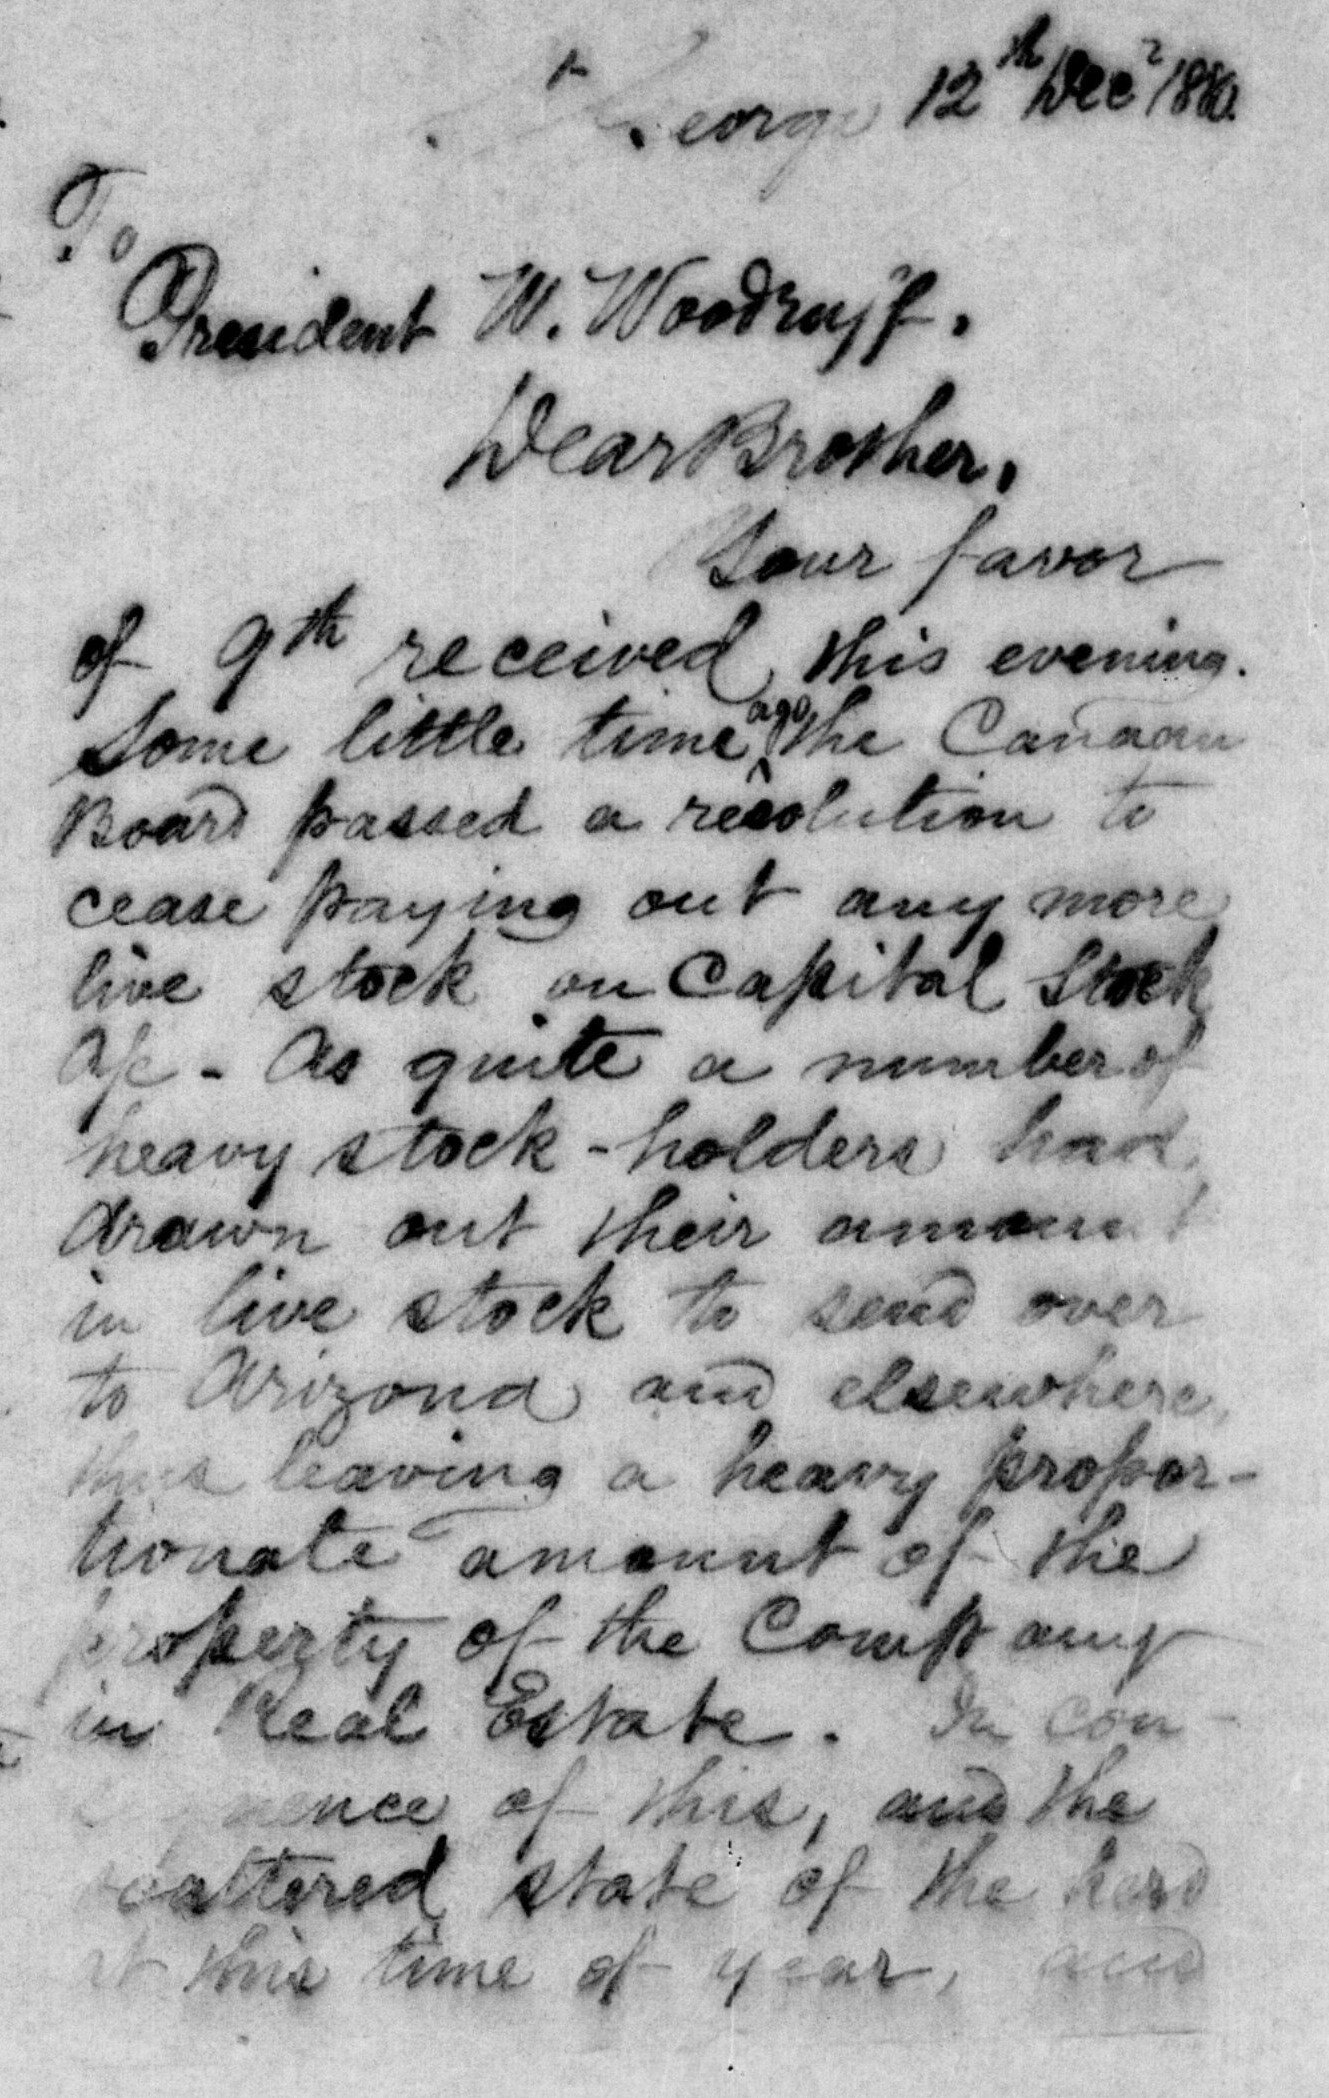 St. George 12th Decr 1880.
To
President W. Woodruff.
Dear Brother,
Your favor
of 9th received this evening.
Some little time ago the Canaan
Board passed a resolution to
cease paying out any more
live stock on Capital Stock
a/c - As quite a number of
heavy stock-holders had
drawn out their amount
in live stock to send over
to Arizona and elsewhere,
thus leaving a heavy propor-
tionate amount of the
property of the Company
in Real Estate. In con-
of this, and the
scattered state of the herd
at this time of year, and